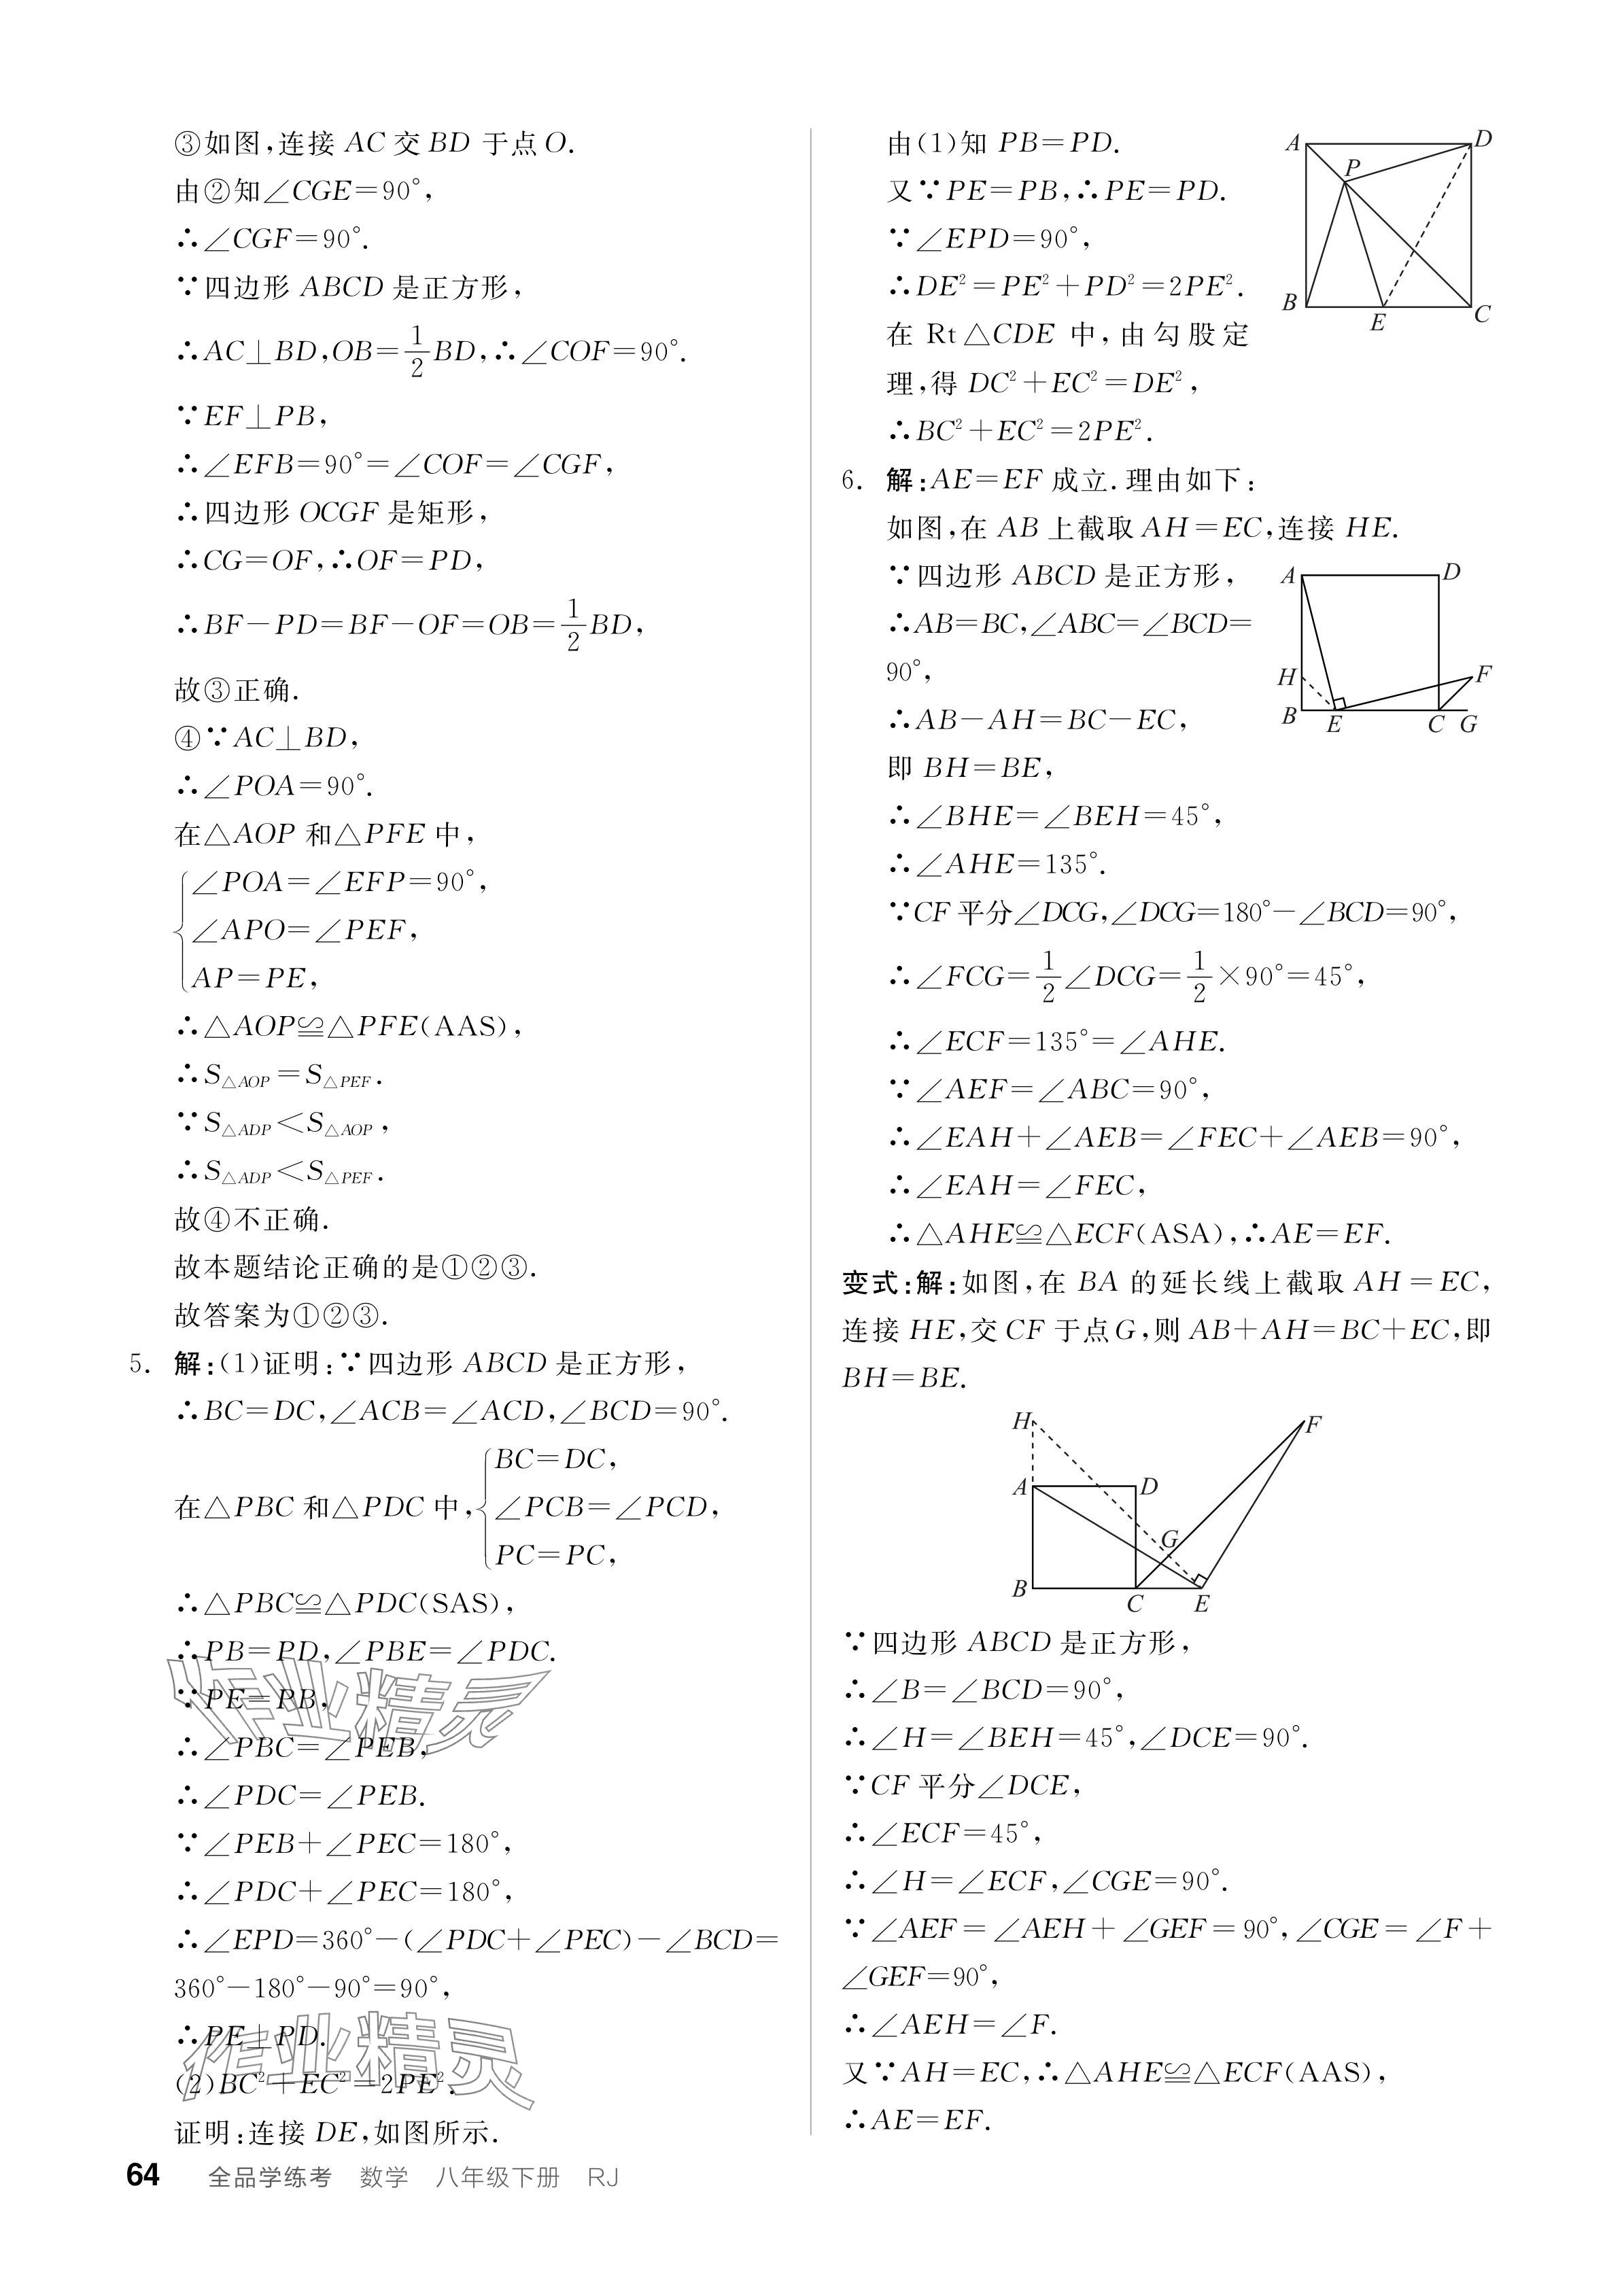 ③如图,连接 AC 交 BD 于点 O.
由②知∠CGE=90°,
∴∠CGF=90°.
∵四边形 ABCD 是正方形,
∴AC⊥BD,OB=1/2BD,∴∠COF=90°.
∵EF⊥PB,
∴∠EFB=90°=∠COF=∠CGF,
∴四边形 OCGF 是矩形,
∴CG=OF,∴OF=PD,
∴BF-PD=BF-OF=OB=1/2BD,
故③正确.
④∵AC⊥BD,
∴∠POA=90°.
在△AOP 和△PFE 中,
∠POA=∠EFP=90°,
∠APO=∠PEF,
AP=PE,
∴△AOP≌△PFE(AAS),
∴S△AOP=S△PEF.
∵S△ADP<S△AOP,
∴S△ADP<S△PEF.
故④不正确.
故本题结论正确的是①②③.
故答案为①②③.
5. 解:(1)证明:∵四边形 ABCD 是正方形,
∴BC=DC,∠ACB=∠ACD,∠BCD=90°.
在△PBC 和△PDC 中,
BC=DC,
∠PCB=∠PCD,
PC=PC,
∴△PBC≌△PDC(SAS),
∴PB=PD,∠PBE=∠PDC.
∵PE=PB,
∴∠PBC=∠PEB,
∴∠PDC=∠PEB.
∵∠PEB+∠PEC=180°,
∴∠PDC+∠PEC=180°,
∴∠EPD=360°-(∠PDC+∠PEC)-∠BCD=
360°-180°-90°=90°,
∴PE⊥PD.
(2)BC²+EC²=2PE².
证明:连接 DE,如图所示.
作业精灵
作业精灵
由(1)知 PB=PD.
又∵PE=PB,∴PE=PD.
∵∠EPD=90°,
∴DE²=PE²+PD²=2PE².
在 Rt△CDE 中,由勾股定
理,得 DC²+EC²=DE²,
∴BC²+EC²=2PE².
A D
P
B E C
6. 解:AE=EF 成立.理由如下:
如图,在 AB 上截取 AH=EC,连接 HE.
∵四边形 ABCD 是正方形,
∴AB=BC,∠ABC=∠BCD=
90°,
∴AB-AH=BC-EC,
即 BH=BE,
A D
H F
B E C G
∴∠BHE=∠BEH=45°,
∴∠AHE=135°.
∵CF 平分∠DCG,∠DCG=180°-∠BCD=90°,
∴∠FCG=1/2∠DCG=1/2×90°=45°,
∴∠ECF=135°=∠AHE.
∵∠AEF=∠ABC=90°,
∴∠EAH+∠AEB=∠FEC+∠AEB=90°,
∴∠EAH=∠FEC,
∴△AHE≌△ECF(ASA),∴AE=EF.
变式:解:如图,在 BA 的延长线上截取 AH=EC,
连接 HE,交 CF 于点G,则 AB+AH=BC+EC,即
BH=BE.
H F
A D
G
B C E
∵四边形 ABCD 是正方形,
∴∠B=∠BCD=90°,
∴∠H=∠BEH=45°,∠DCE=90°.
∵CF 平分∠DCE,
∴∠ECF=45°,
∴∠H=∠ECF,∠CGE=90°.
∵∠AEF=∠AEH+∠GEF=90°,∠CGE=∠F+
∠GEF=90°,
∴∠AEH=∠F.
又∵AH=EC,∴△AHE≌△ECF(AAS),
∴AE=EF.
64 全品学练考 数学 八年级下册 RJ